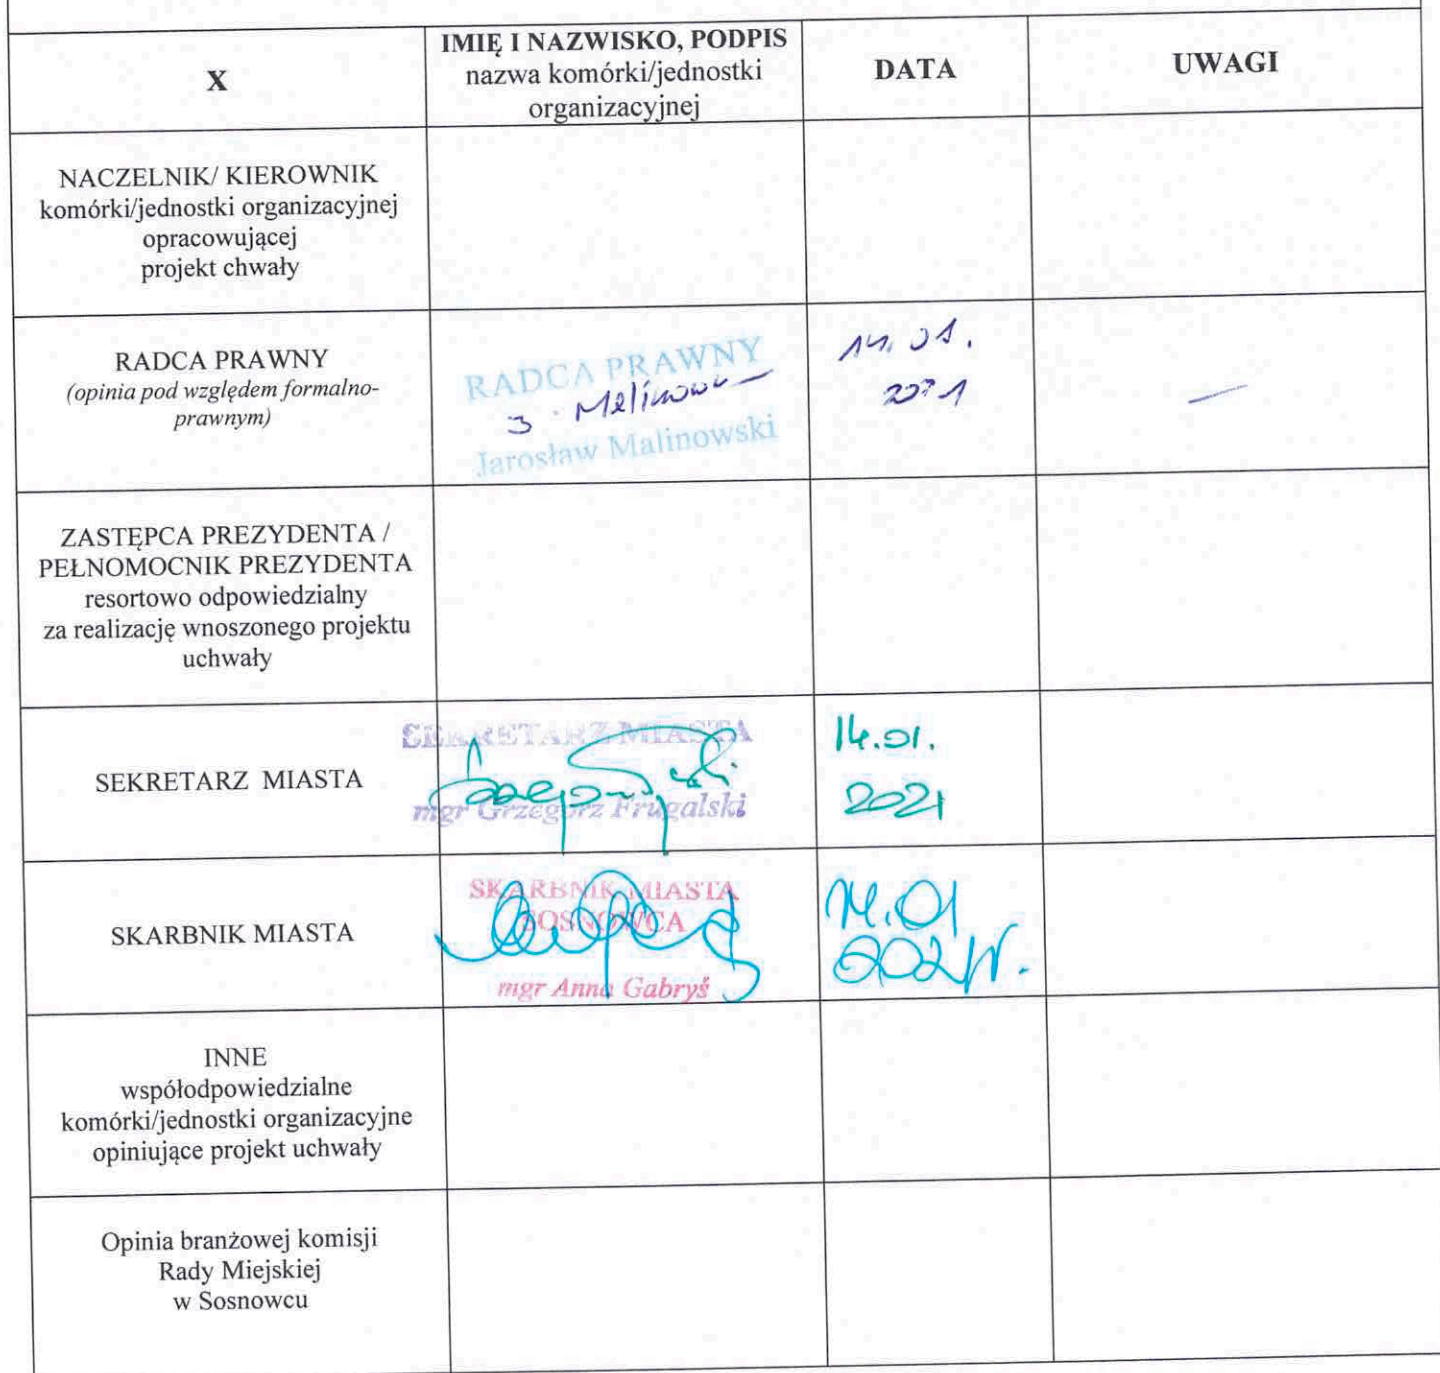 X
IMIĘ I NAZWISKO, PODPIS
nazwa komórki/jednostki
organizacyjnej
DATA
UWAGI
NACZELNIK/ KIEROWNIK
komórki/jednostki organizacyjnej
opracowującej
projekt chwały
RADCA PRAWNY
(opinia pod względem formalno-
prawnym)
RADCA PRAWNY
Jarosław Malinowski
14.01.
2021
—
ZASTĘPCA PREZYDENTA /
PEŁNOMOCNIK PREZYDENTA
resortowo odpowiedzialny
za realizację wnoszonego projektu
uchwały
SEKRETARZ MIASTA
SEKRETARZ MIASTA
mgr Grzegorz Frugalski
14.01.
2021
SKARBNIK MIASTA
SKARBNIK MIASTA
SOSNOWCA
mgr Anna Gabryś
14.01
2021r.
INNE
współodpowiedzialne
komórki/jednostki organizacyjne
opiniujące projekt uchwały
Opinia branżowej komisji
Rady Miejskiej
w Sosnowcu